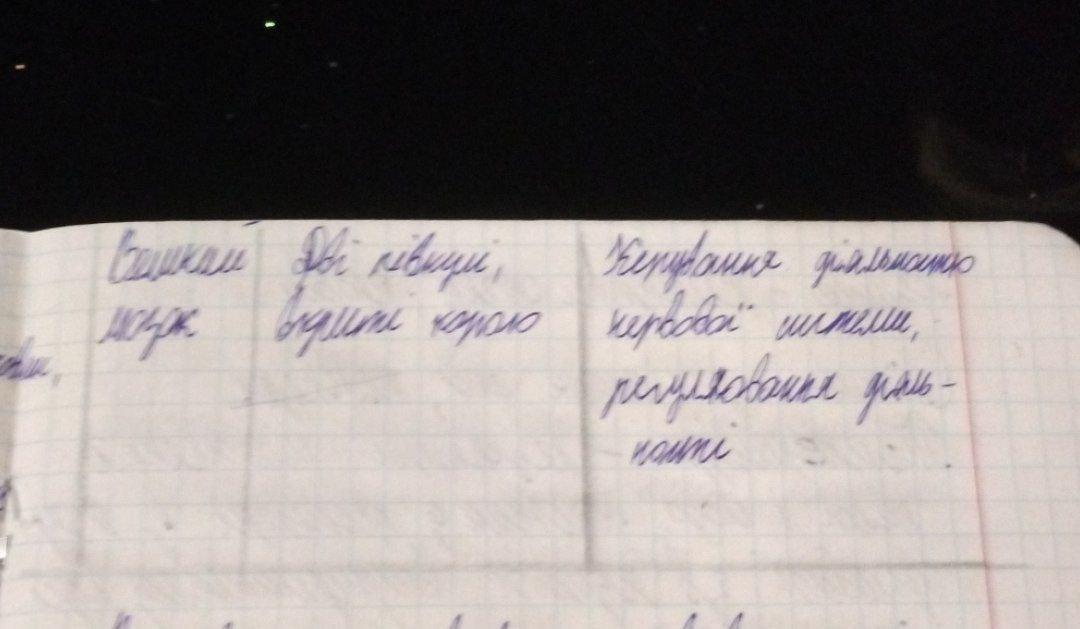 Великий
мозок
Дві півкулі,
вкриті корою
Керування діяльністю
нервової системи,
регулювання діяль-
ності